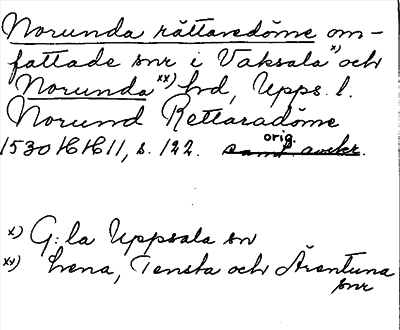 Norunda rättaredöme om-
fattade snr i Vaksala x) och
Norunda xx) hd, Upps. l.
Norund Rettaradöme
1530 HH 11, s. 122. orig.
x) G:la Uppsala sn
xx) Lena, Tensta och Ärentuna
snr